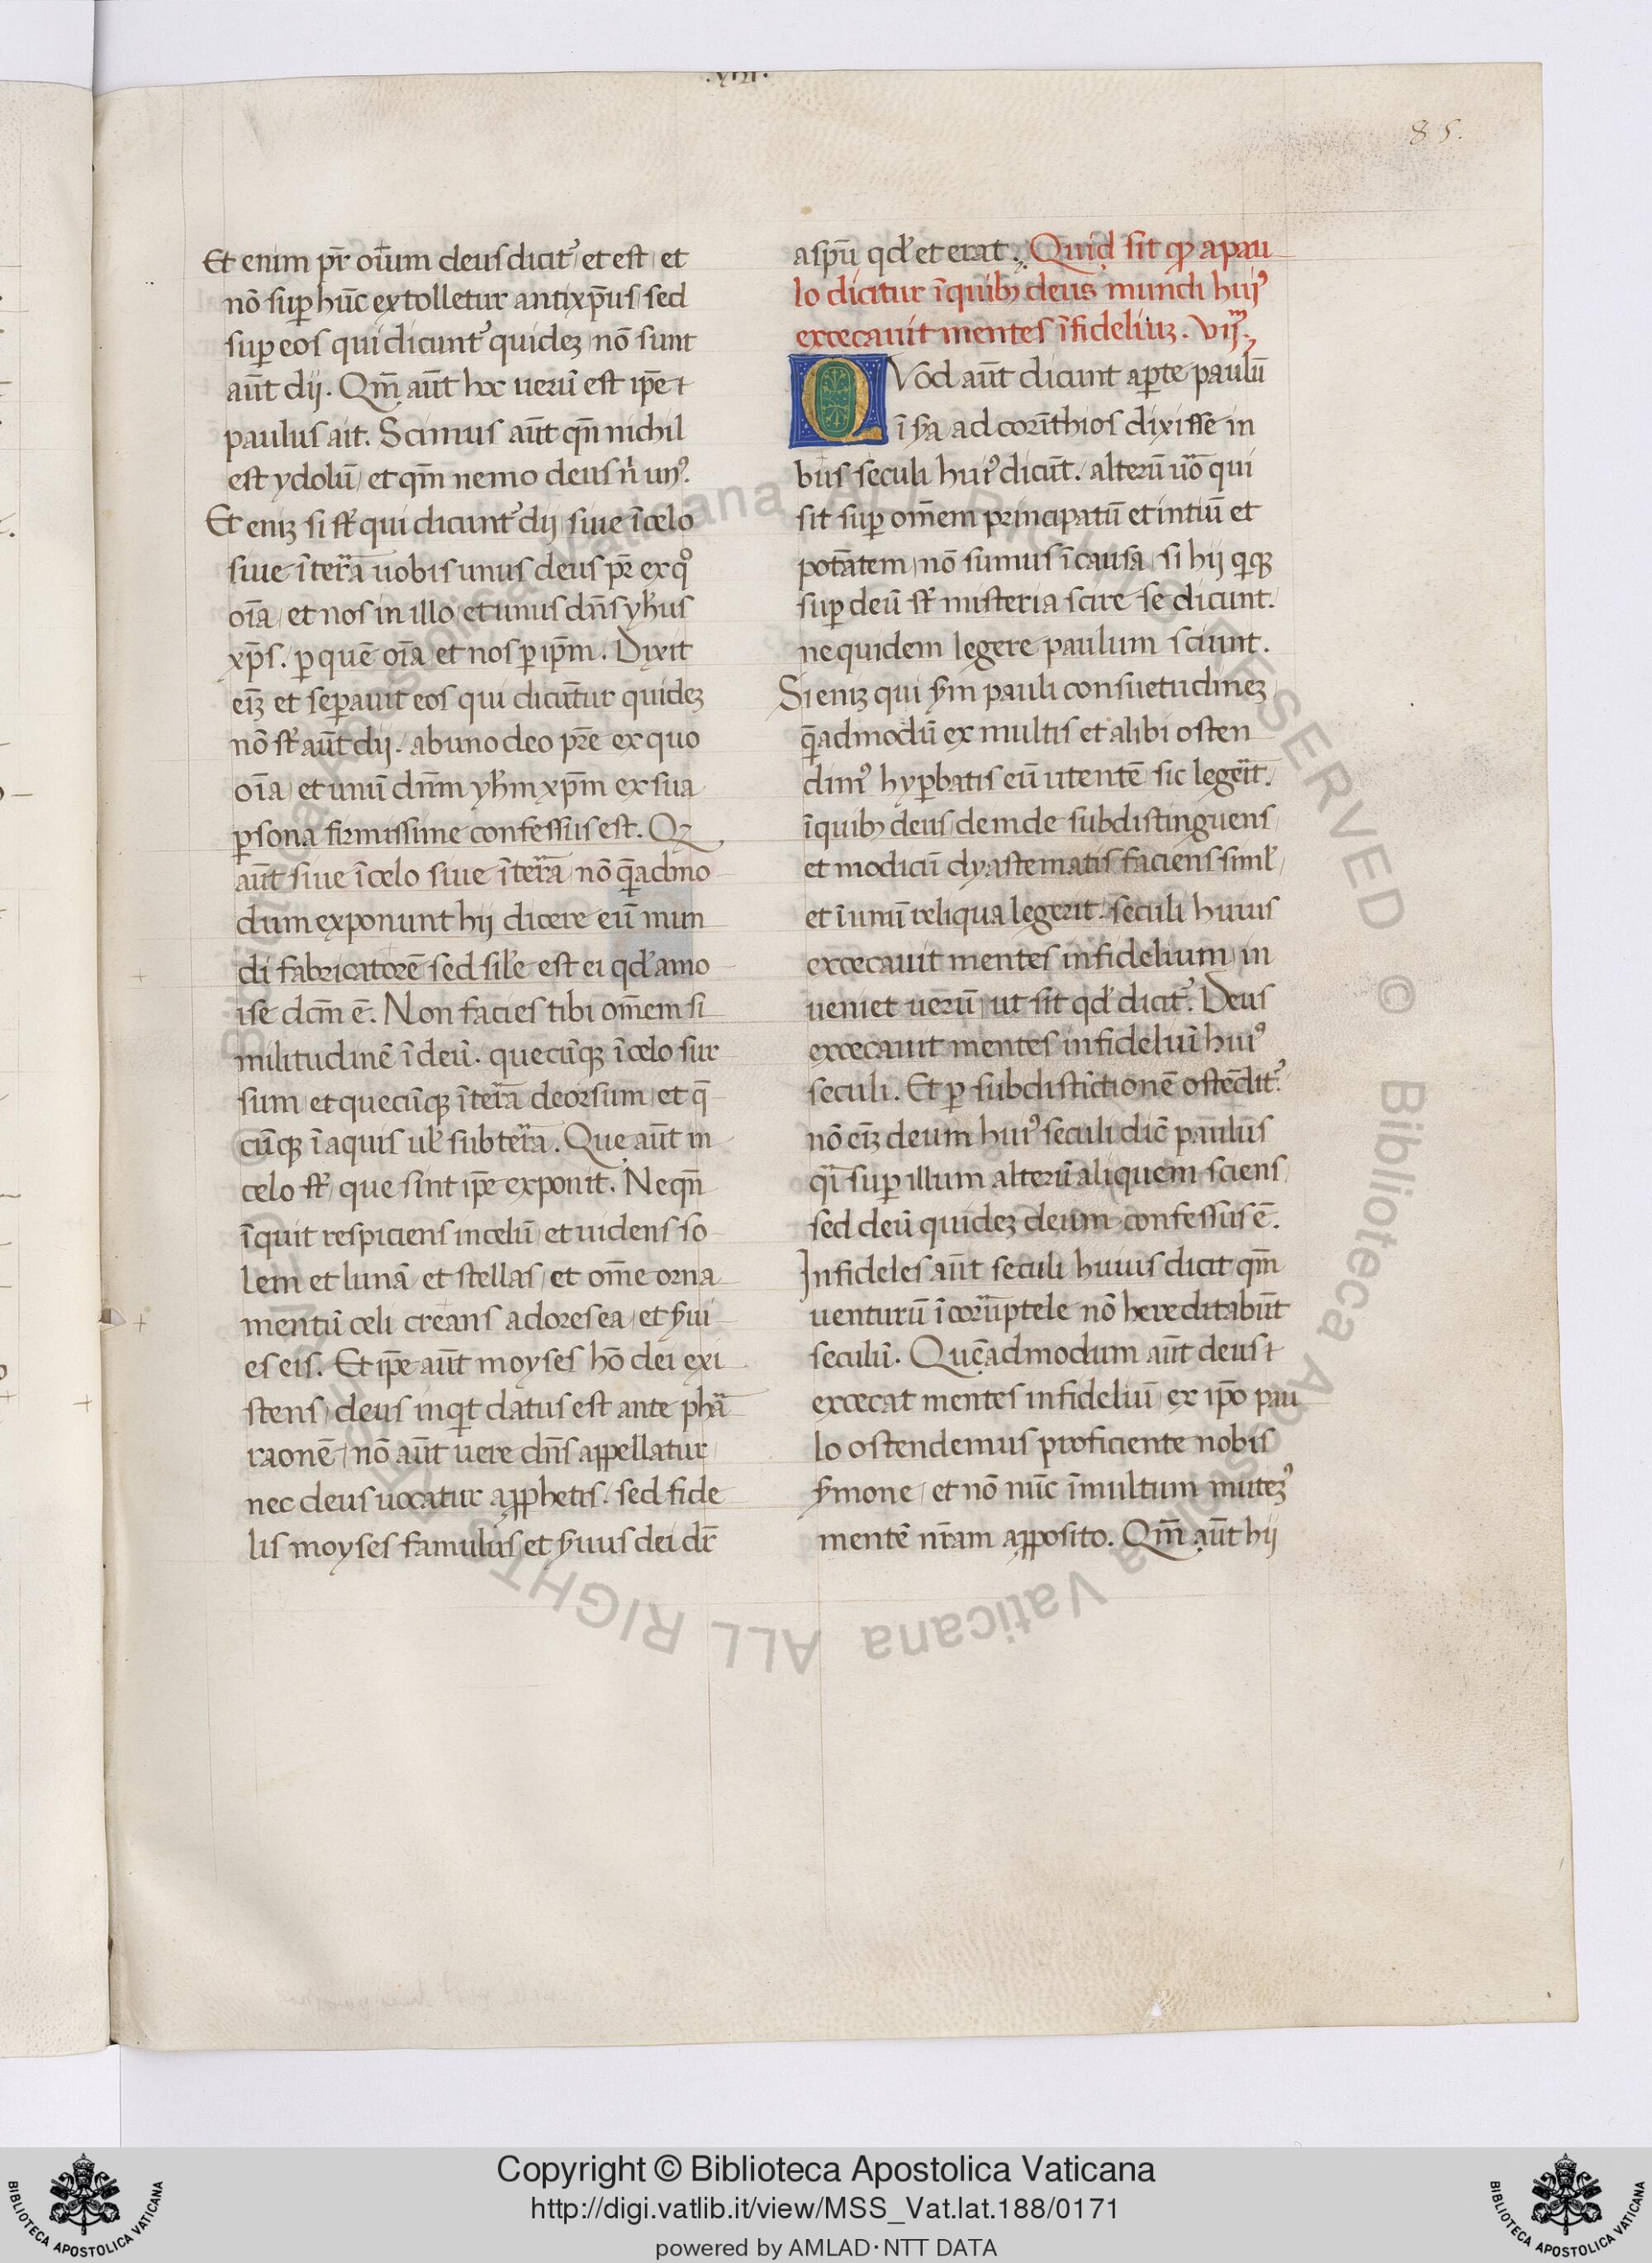 .xiiii.
85.
Et enim pr̄ oīum deus dicit᷒ et est et
nō suꝑ hūc extolletur antixp̄us sed
suꝑ eos qui dicunt᷒ quideꝫ nō sunt
aūt dij. Qm̄ aūt hoc ueꝝ̄ est ip̄e ⁊
paulus ait. Scimus aūt qm̄ nichil
est ydolū et qm̄ nemo deus n̄ unꝰ.
Et eniꝫ si st̄ qui dicunt᷒ dij siue ī celo
siue ī terra uobis unus deus pr̄ ex qͦ
oīa et nos in illo et unus dn̄s yh̄us
xp̄s. ꝑ quē oīa et nos ꝑ ip̄m. Dixit
eīꝫ et seꝑauit eos qui dicūtur quideꝫ
nō st̄ aūt dij. ab uno deo pr̄e ex quo
oīa et unū dn̄m yh̄m xp̄m ex sua
ꝑsona firmissime confessus est. Qꝫ
aūt siue ī celo siue ī terra nō q̄admo
dum exponunt hij dicere eū mun
di fabricatorē sed sile est ei qd̓ a mo
ise dc̄m ē. Non facies tibi om̄em si
militudinē ī deū. quecūqꝫ ī celo sur
sum et quecūqꝫ ī terra deorsum et q̄
cūqꝫ ī aquis ul̓ sub terra. Que aūt in
celo st̄ que sint ip̄e exponit. Ne qn̄
īquit respiciens in celū et uidens so
lem et lunā et stellas et om̄e orna
mentū celi creans adores ea et ẜui
es eis. Et ip̄e aūt moyses hō dei exi
stens deus inqͥt datus est ante pha
raonē nō aūt uere dn̄s appellatur
nec deus uocatur a ꝓphetis. sed fide
lis moyses famulus et ẜuus dei dr̄
a spū qd̓ et erat. Quid sit qꝫ a pau
lo dicitur ī quibꝫ deus mundi huiꝰ
excecauit mentes īfideliuꝫ. vij.
QVod aūt dicunt aꝑte paulū
ī ẜa ad corīthios dixisse in
bus seculi huiꝰ dicūt. alterū uō qui
sit suꝑ om̄em principatū et intiū et
potātem nō sumus ī causa si hij qͥqꝫ
suꝑ deū st̄ misteria scire se dicunt.
ne quidem legere paulum sciunt.
Si eniꝫ qui ẜm pauli consuetudineꝫ
q̄admodū ex multis et alibi osten
dimꝰ hyꝑbatis eū utentē sic legerit.
ī quibꝫ deus deinde subdistinguens
et modicū dyastematis faciens simł
et ī unū reliqua legerit. seculi huius
excecauit mentes infidelium in
ueniet uerū ut sit qd̓ dicit᷒. Deus
excecauit mentes infideliū huiꝰ
seculi. Et ꝑ subdistīctionē ostēdit᷒.
nō eīꝫ deum huiꝰ seculi dic̄ paulus
qͥ suꝑ illum alterū aliquem sciens
sed deū quideꝫ deum confessus ē.
Infideles aūt seculi huius dicit qm̄
uenturū īcorruptele nō hereditabūt
seculū. Quēadmodum aūt deus ⁊
excecat mentes infideliū ex ip̄o pau
lo ostendemus proficiente nobis
ẜmone et nō nūc ī multum muteꝫꝰ
mentē nr̄am a ꝓposito. Qm̄ aūt hij
Copyright © Biblioteca Apostolica Vaticana
http://digi.vatlib.it/view/MSS_Vat.lat.188/0171
powered by AMLAD·NTT DATA